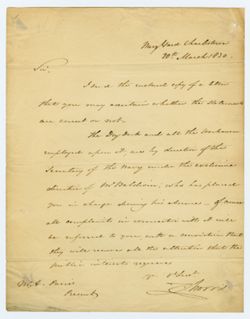 Navy Yard Charlestown
20th March 1830.
Sir,
I send the enclosed copy of a letter
that you may ascertain whether the statements
are correct or not.
The Dry Dock and all the workmen
employed upon it are by direction of the
Secretary of the Navy under the exclusive
direction of Mr Baldwin, who has placed
you in charge during his absence - of course
all complaints in connection with it will
be referred to you with a conviction that
they will receive all the attention that the
public interests requires
Mr A. Parris
Present